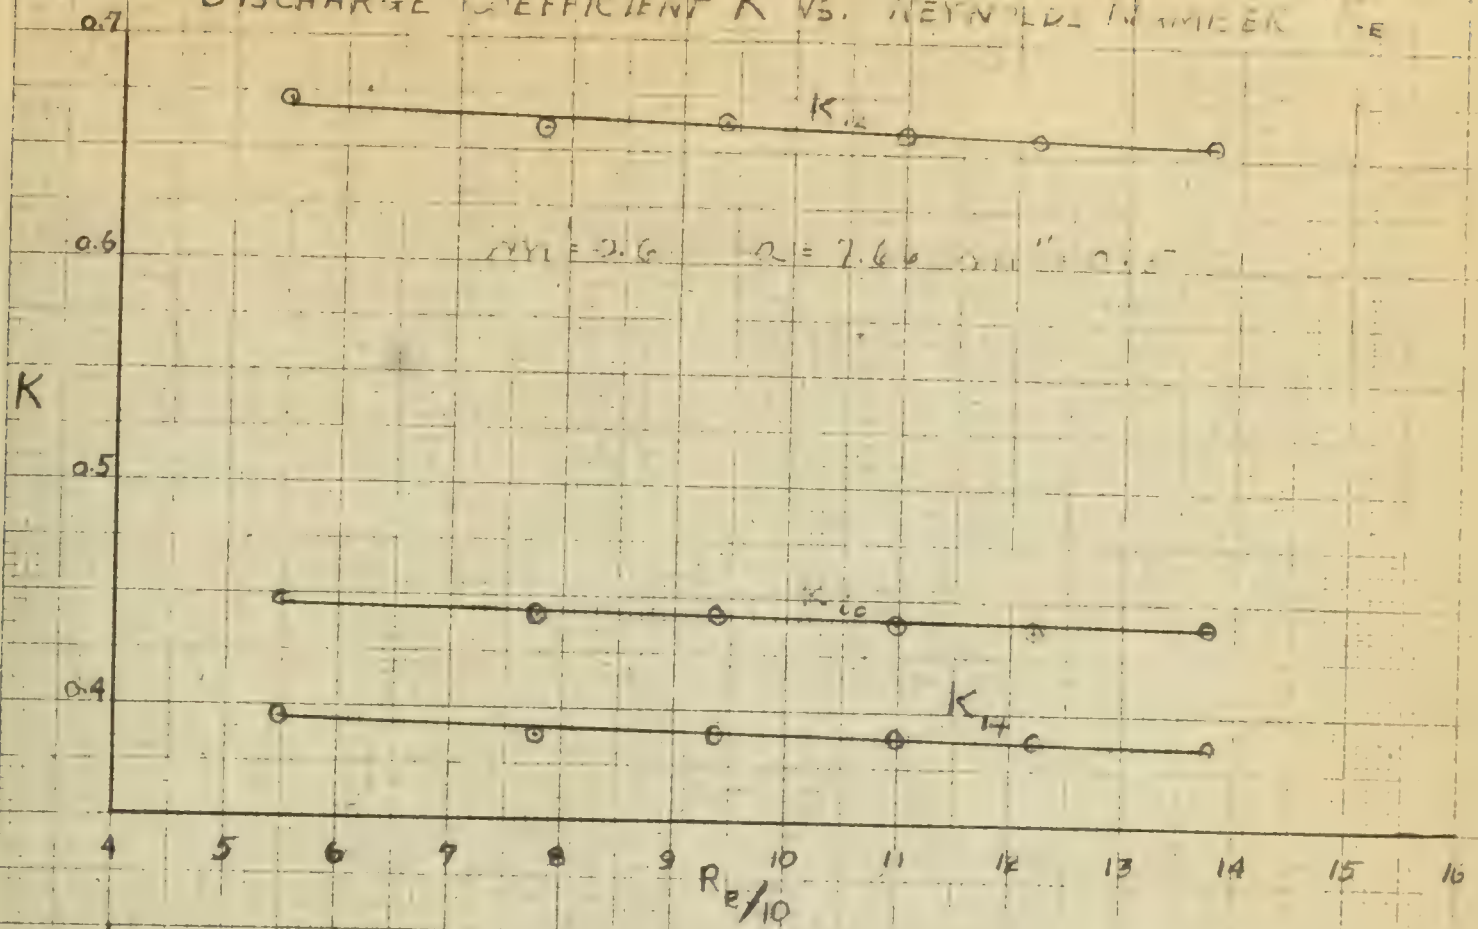 DISCHARGE COEFFICIENT K VS. REYNOLDS NUMBER
0.7
K
0.6
m = 0.6
K
0.5
K
0.4
K 14
4 5 6 7 8 9 10 11 12 13 14 15 16
Re/10